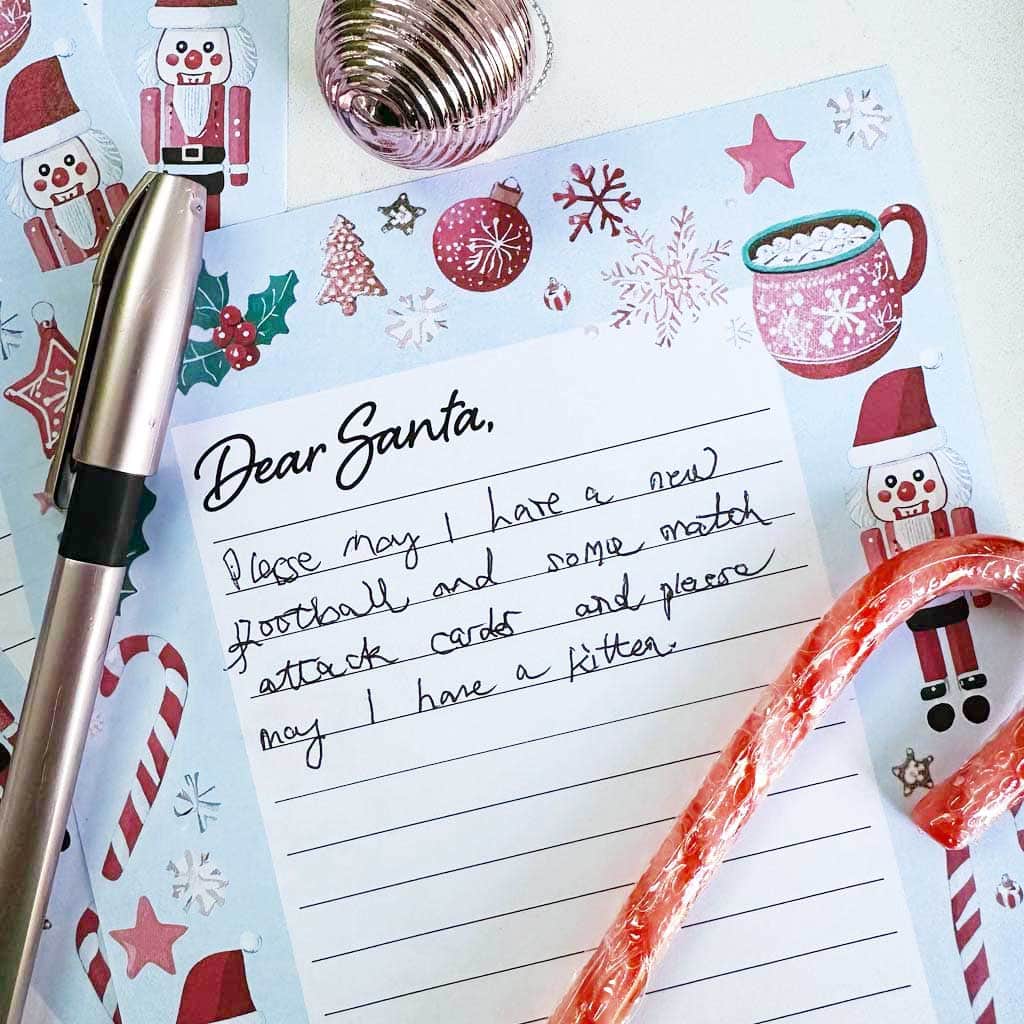 Dear Santa,
Please may I have a new
football and some match
attack cards and please
may I have a kitten.